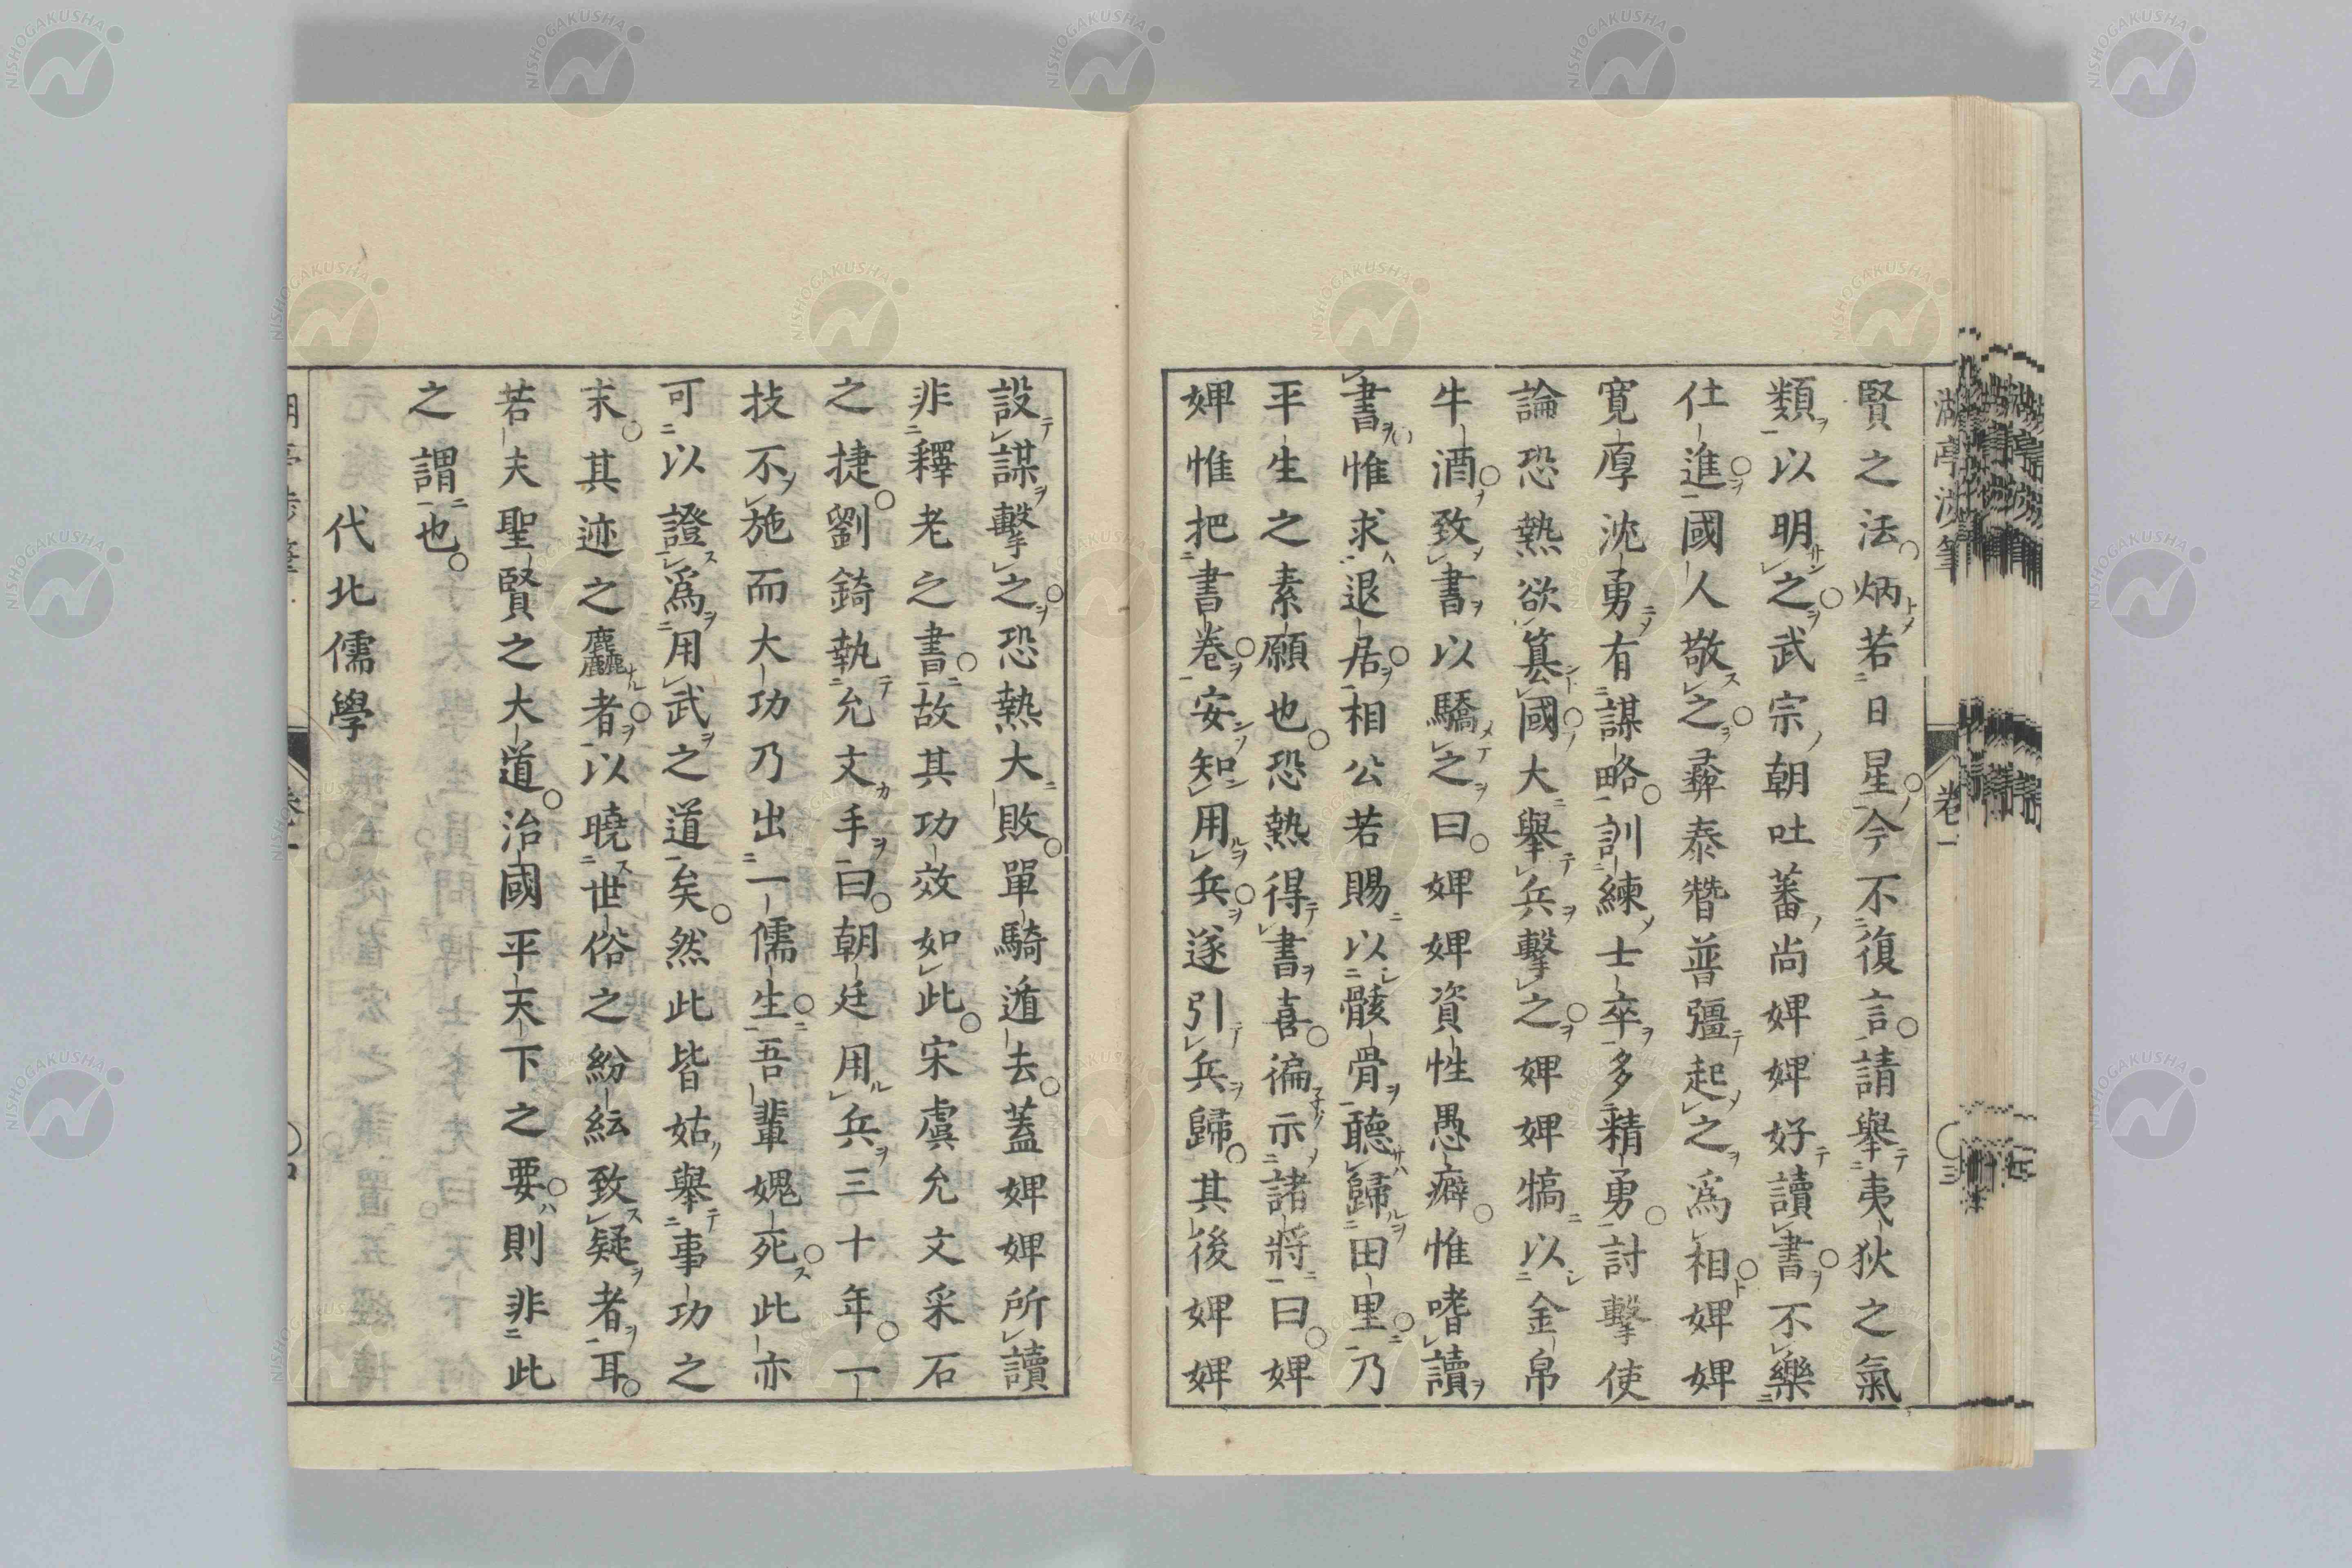 賢之法炳若日星今不復言請舉夷狄之氣
類以明之武宗朝吐蕃尚婢婢好讀書不樂
仕進國人敬之彛泰贊普彊起之爲相婢婢
寬厚沈勇有謀略訓練士卒多精勇討擊使
論恐熱欲簒國大舉兵擊之婢婢犒以金帛
牛酒致書以驕之曰婢婢資性愚癖惟嗜讀
書惟求退居相公若賜以骸骨聽歸田里乃
平生之素願也恐熱得書喜徧示諸將曰婢
婢惟把書卷安知用兵遂引兵歸其後婢婢
設謀擊之恐熱大敗單騎遁去蓋婢婢所讀
非釋老之書故其功效如此宋虞允文采石
之捷劉錡執允文手曰朝廷用兵三十年一
技不施而大功乃出一儒生吾輩媿死此亦
可以證爲用武之道矣然此皆姑舉事功之
末其迹之麤者以曉世俗之紛紜致疑者耳
若夫聖賢之大道治國平天下之要則非此
之謂也
代北儒學
卷一
NISHOGAKUSHA